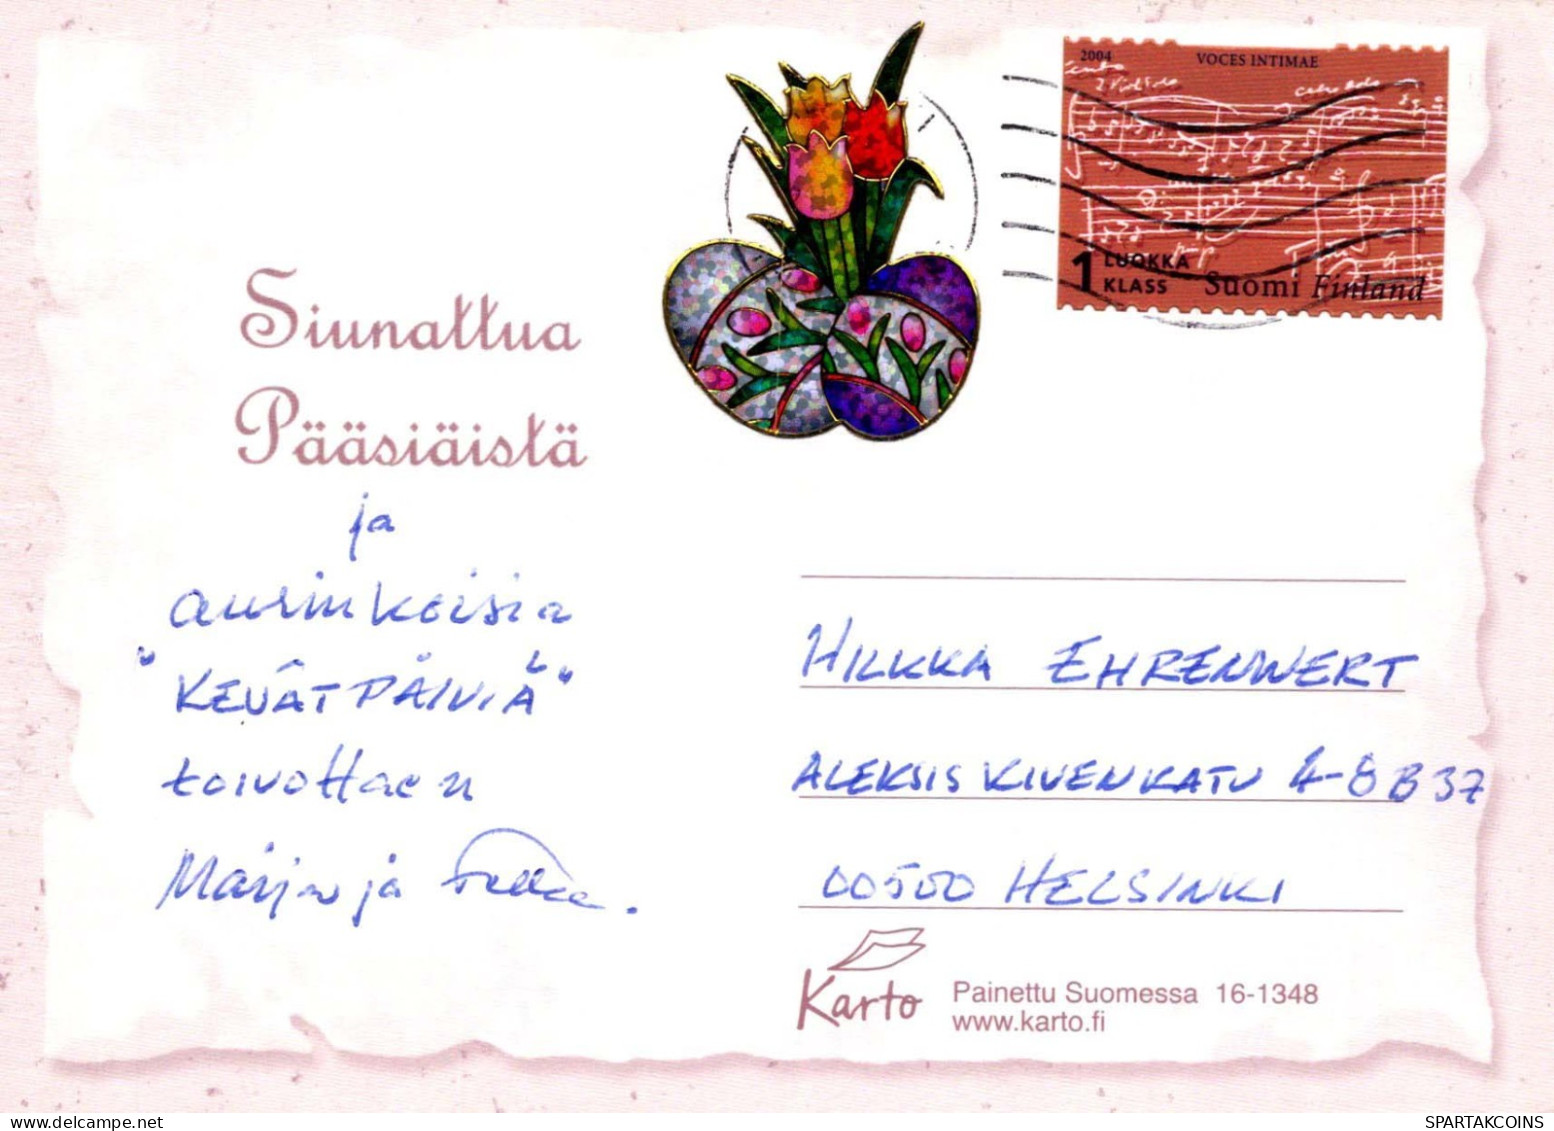 2004 VOCES INTIMAE
1 LUOKKA
KLASS
Suomi Finland
Siunattua
Pääsiäistä
ja
aurinkoisia
"KEVÄTPÄIVIÄ"
toivottaen
Marja ja
HILKKA EHRENWERT
ALEKSIS KIVENKATU 4-8 B 37
00500 HELSINKI
Karto
Painettu Suomessa 16-1348
www.karto.fi
SPARTAKCOINS